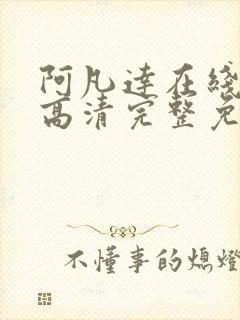 阿凡達在綫
高清完整免
不懂事的熄燈